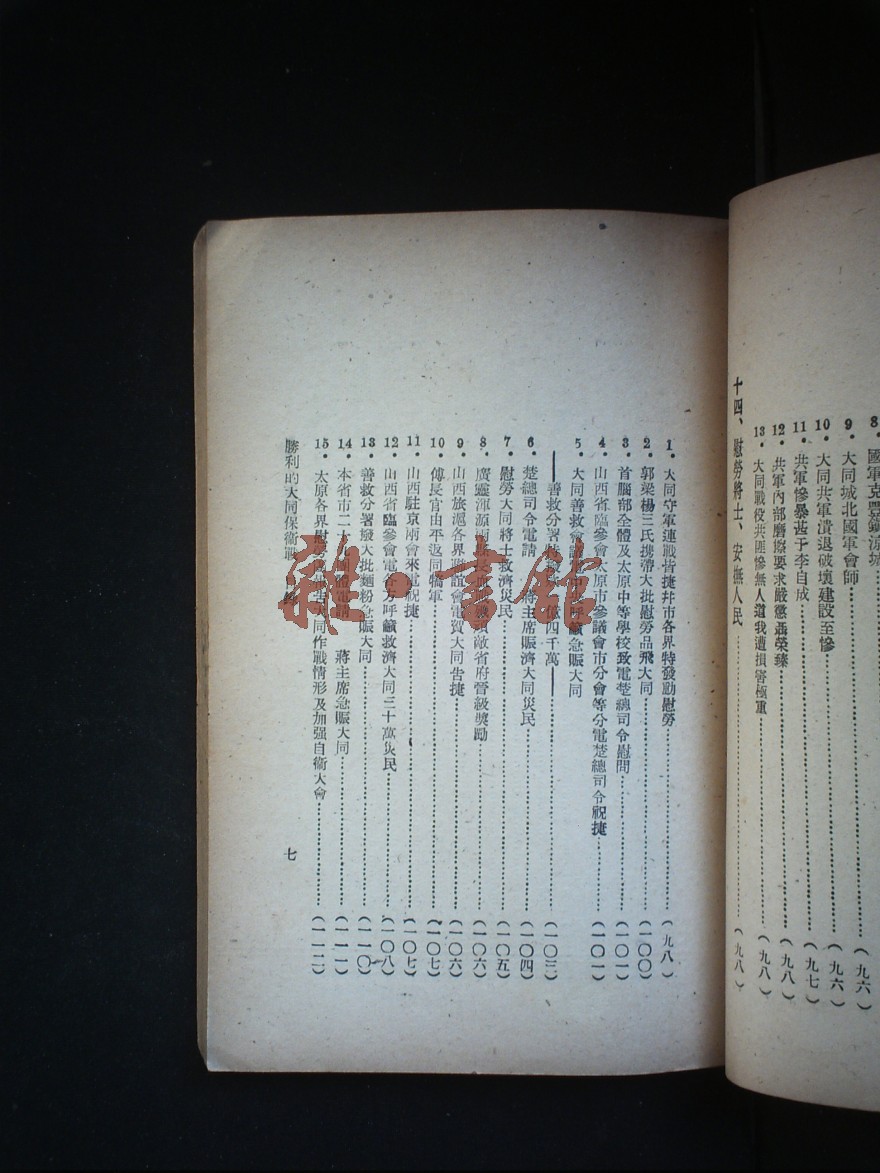 8. 國軍克豐鎮涼城……(九六)
9. 大同城北國軍會師……(九六)
10. 大同共軍潰退破壞建設至慘……(九六)
11. 共軍慘暴甚于李自成……(九七)
12. 共軍內部磨擦要求嚴懲聶榮臻……(九八)
13. 大同戰役共匪慘無人道我遭損害極重……(九八)
十四、慰勞將士、安撫人民……(九八)
1. 大同守軍連戰皆捷幷市各界特發動慰勞……(九八)
2. 郭梁楊三氏携帶大批慰勞品飛大同……(一〇〇)
3. 首腦部全體及太原中等學校致電楚總司令慰問……(一〇一)
4. 山西省臨參會太原市參議會市分會等分電楚總司令祝捷……(一〇一)
5. 大同善救會 呼籲急賑大同
——善救分署 億四千萬——……(一〇三)
6. 楚總司令電請 蔣主席賑濟大同災民……(一〇四)
7. 慰勞大同將士救濟災民……(一〇五)
8. 廣靈渾源兩縣長 敵省府晉級獎勵……(一〇六)
9. 山西旅滬各界聯誼會電賀大同吿捷……(一〇六)
10. 傅長官由平返同犒軍……(一〇七)
11. 山西駐京兩會來電祝捷……(一〇七)
12. 山西省臨參會電各方呼籲救濟大同三十萬災民……(一〇八)
13. 善救分署發大批麵粉急賑大同……(一一〇)
14. 本省市二十九團體電請 蔣主席急賑大同……(一一一)
15. 太原各界慰勞 大同作戰情形及加强自衛大會……(一一二)
勝利的大同保衛戰 目錄
七
書館